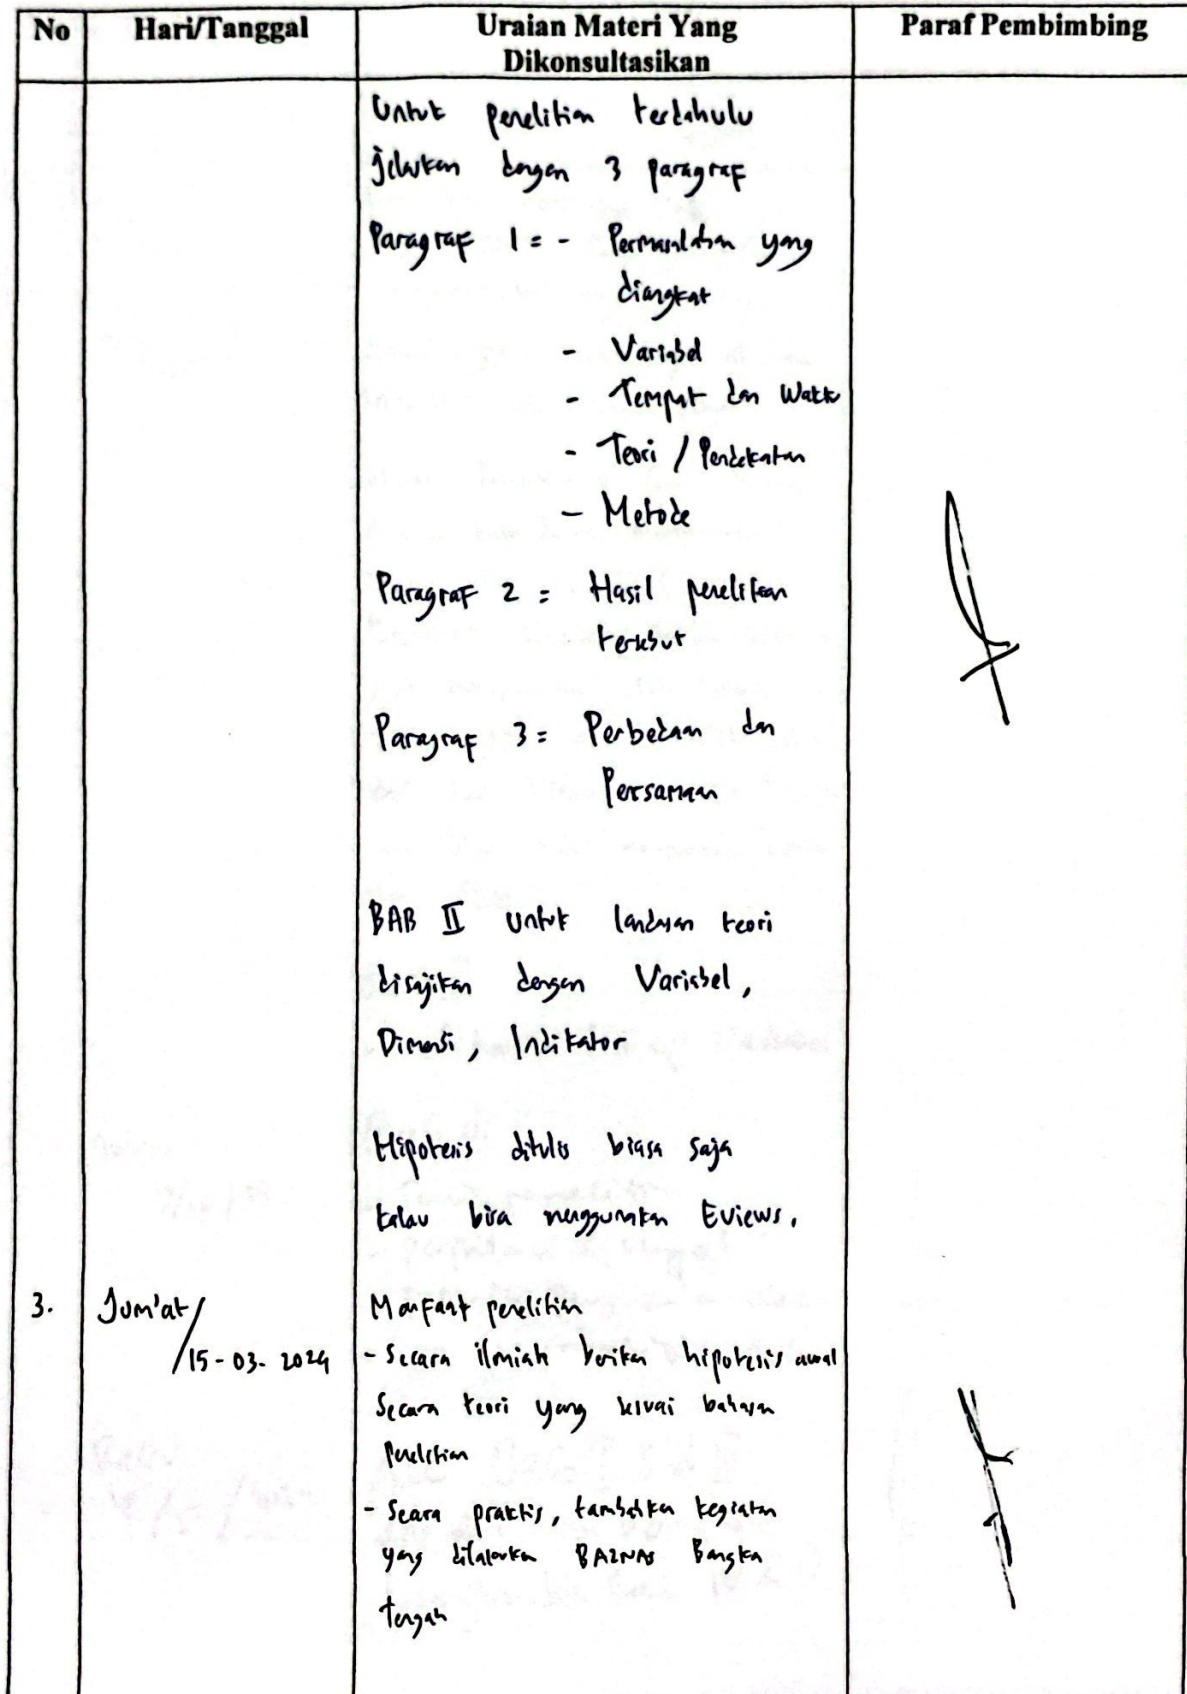 No Hari/Tanggal Uraian Materi Yang Dikonsultasikan Paraf Pembimbing
Untuk penelitian terdahulu
jelaskan dengan 3 paragraf
Paragraf 1 = - Permasalahan yang
diangkat
- Variabel
- Tempat dan Waktu
- Teori / Pendekatan
- Metode
Paragraf 2 = Hasil penelitian
tersebut
Paragraf 3 = Perbedaan dan
Persamaan
BAB II untuk landasan teori
disajikan dengan Variabel,
Dimensi, Indikator
Hipotesis ditulis biasa saja
kalau bisa menggunakan Eviews.
3. Jum'at / Manfaat penelitian
/ 15-03-2024 - Secara ilmiah berikan hipotesis awal
Secara teori yang sesuai bahasan
Penelitian
- Secara praktis, tambahkan kegiatan
yang dilakukan BAZNAS Bangka
Tengah